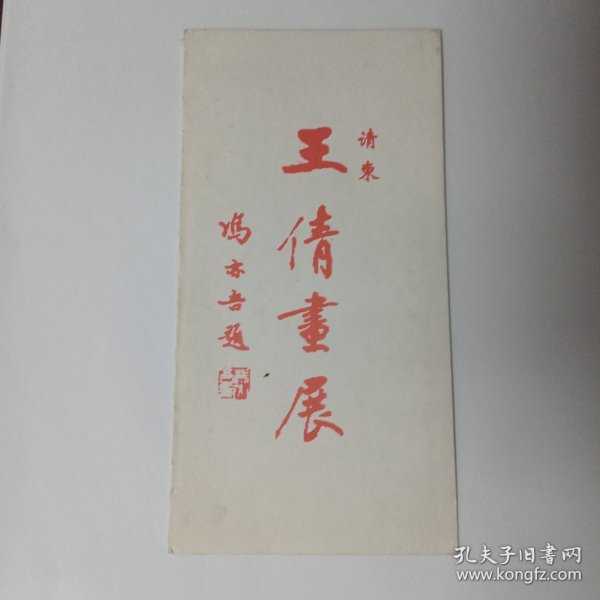 请柬
王倩畫展
馮亦吾題
孔夫子旧书网
www.kongfz.com